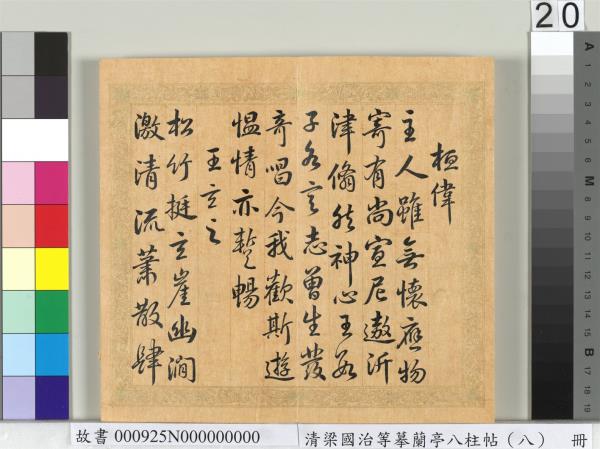 桓偉
主人雖無懷應物
寄有尚宣尼遨沂
津翛然神心王數
子各言志曾生發
奇唱今我歡斯遊
慍情亦暫暢
王玄之
松竹挺玄崖幽澗
激清流蕭散肆
20
A 1 2 3 4 5 6 M 8 9 10 11 12 13 14 15 B 17 18 19
故書 000925N000000000 清梁國治等摹蘭亭八柱帖(八) 冊